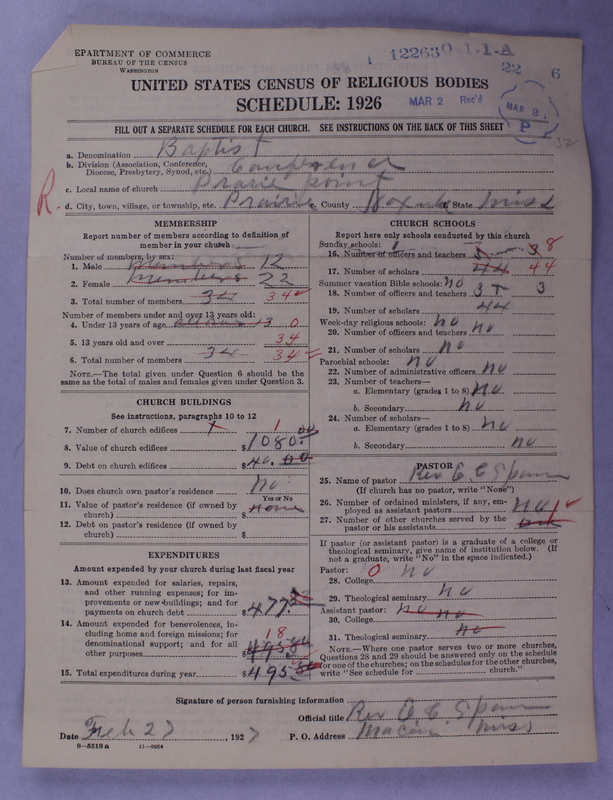 DEPARTMENT OF COMMERCE
BUREAU OF THE CENSUS
WASHINGTON
122630-1-1-A
22 6
UNITED STATES CENSUS OF RELIGIOUS BODIES
SCHEDULE: 1926
MAR 2 Rec'd
MAR 2
P
FILL OUT A SEPARATE SCHEDULE FOR EACH CHURCH. SEE INSTRUCTIONS ON THE BACK OF THIS SHEET
a. Denomination Baptist
b. Division (Association, Conference, Diocese, Presbytery, Synod, etc.)
c. Local name of church Prarie point
R.
d. City, town, village, or township, etc. Prairie e. County Noxube f. State Miss
MEMBERSHIP
Report number of members according to definition of member in your church
Number of members, by sex:
1. Male Members 12
2. Female Members 22
3. Total number of members 34 34
Number of members under and over 13 years old:
4. Under 13 years of age 13 0
5. 13 years old and over 34
6. Total number of members 34 34
NOTE.—The total given under Question 6 should be the same as total of males and females given under Question 3.
CHURCH BUILDINGS
See instructions, paragraphs 10 to 12
7. Number of church edifices 1 1
8. Value of church edifices $1080.00
9. Debt on church edifices $40.00
10. Does church own pastor's residence no
Yes or No
11. Value of pastor's residence (if owned by church) $ none
12. Debt on pastor's residence (if owned by church) $
EXPENDITURES
Amount expended by your church during last fiscal year
13. Amount expended for salaries, repairs, and other running expenses; for improvements or new buildings; and for payments on church debt $477
14. Amount expended for benevolences, including home and foreign missions; for denominational support; and for all other purposes 18 $
15. Total expenditures during year $495
CHURCH SCHOOLS
Report here only schools conducted by this church
Sunday schools: 1
16. Number of officers and teachers 3 8
17. Number of scholars 44 44
Summer vacation Bible schools: no
18. Number of officers and teachers 3 3
19. Number of scholars 44
Week-day religious schools: no
20. Number of officers and teachers no
21. Number of scholars no
Parochial schools: no
22. Number of administrative officers no
23. Number of teachers—
a. Elementary (grades 1 to 8) no
b. Secondary no
24. Number of scholars—
a. Elementary (grades 1 to 8) no
b. Secondary no
PASTOR
25. Name of pastor Rev
(If church has no pastor, write "None")
26. Number of ordained ministers, if any, employed as assistant pastors no
27. Number of other churches served by the pastor or his assistants
If pastor (or assistant pastor) is a graduate of a college or theological seminary, give name of institution below. (If not a graduate, write "No" in the space indicated.)
Pastor: 0
28. College no
29. Theological seminary no
Assistant pastor: no
30. College no
31. Theological seminary no
NOTE.—Where one pastor serves two or more churches, Questions 28 and 29 should be answered only on the schedule for one of the churches; on the schedules for the other churches, write "See schedule for ______ church."
Signature of person furnishing information
Official title Rev
Date Feb 27, 1927 P. O. Address Macon Miss
8-5518a 11-9054